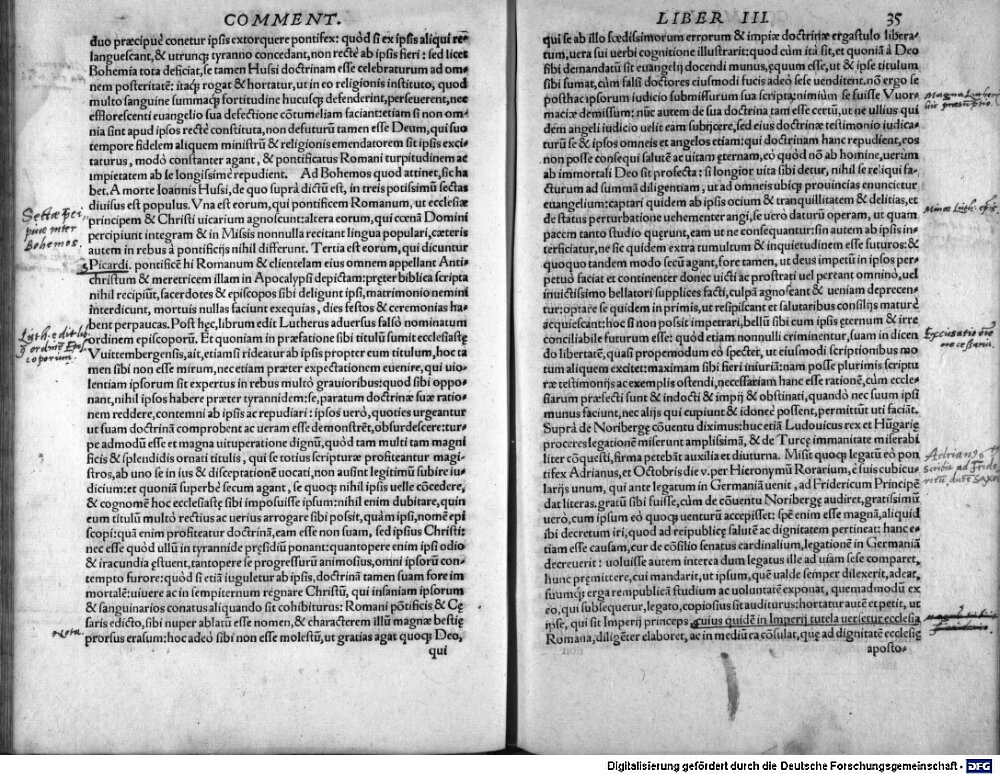 COMMENT.
duo præcipuè conetur ipsis extorquere pontifex: quòd si ex ipsis aliqui re-
languescant, & utrunq; tyranno concedant, non rectè ab ipsis fieri: sed licet
Bohemia tota deficiat, se tamen Hussi doctrinam esse celebraturum ad om-
nem posteritatē: itaq; rogat & hortatur, ut in eo religionis instituto, quod
multo sanguine summaq; fortitudine hucusq; defenderint, perseuerent, nec
efflorescenti euangelio sua defectione cōtumeliam faciant: etiam si non om-
nia sint apud ipsos rectè constituta, non defuturū tamen esse Deum, qui suo
tempore fidelem aliquem ministrū & religionis emendatorem sit ipsis exci-
taturus, modò constanter agant, & pontificatus Romani turpitudinem ac
impietatem ab se longissimè repudient. Ad Bohemos quod attinet, sic ha
bet. A morte Ioannis Hussi, de quo suprà dictū est, in treis potissimū sectas
diuisus est populus. Vna est eorum, qui pontificem Romanum, ut ecclesiæ
principem & Christi uicarium agnoscunt: altera eorum, qui cœnā Domini
percipiunt integram & in Missis nonnulla recitant lingua populari, cæteris
autem in rebus à pontificijs nihil differunt. Tertia est eorum, qui dicuntur
Picardi. pontificē hi Romanum & clientelam eius omnem appellant Anti-
christum & meretricem illam in Apocalypsi depictam: pręter biblica scripta
nihil recipiūt, sacerdotes & episcopos sibi deligunt ipsi, matrimonio nemini
interdicunt, mortuis nullas faciunt exequias, dies festos & ceremonias ha-
bent perpaucas. Post hęc, librum edit Lutherus aduersus falsò nominatum
ordinem episcoporū. Et quoniam in præfatione sibi titulū sumit ecclesiastę
Vuittembergensis, ait, etiamsi rideatur ab ipsis propter eum titulum, hoc ta
men sibi non esse mirum, nec etiam præter expectationem euenire, qui uio-
lentiam ipsorum sit expertus in rebus multò grauioribus: quod sibi oppo-
nant, nihil ipsos habere præter tyrannidem: se, paratum doctrinæ suæ ratio-
nem reddere, contemni ab ipsis ac repudiari: ipsos uerò, quoties urgeantur
ut suam doctrinā comprobent ac ueram esse demonstrēt, obsurdescere: tur-
pe admodū esse et magna uituperatione dignū, quòd tam multi tam magni
ficis & splendidis ornati titulis, qui se totius scripturæ profiteantur magi-
stros, ab uno se in ius & disceptationē uocati, non ausint legitimū subire iu-
dicium: et quoniā superbè secum agant, se quoq; nihil ipsis uelle cōcedere,
& cognomē hoc ecclesiastę sibi imposuisse ipsum: nihil enim dubitare, quin
eum titulū multò rectius ac uerius arrogare sibi possit, quàm ipsi, nomē epi
scopi: quā enim profiteatur doctrinā, eam esse non suam, sed ipsius Christi:
nec esse quòd ullū in tyrannide pręsidiū ponant: quantopere enim ipsi odio
& iracundia æstuent, tantopere se progressurū animosius, omni ipsorū con-
tempto furore: quòd si etiā iuguletur ab ipsis, doctrinā tamen suam fore im
mortalē: uiuere ac in sempiternum regnare Christū, qui insaniam ipsorum
& sanguinarios conatus aliquando sit cohibiturus: Romani pōtificis & Cę
saris edicto, sibi nuper ablatū esse nomen, & characterem illū magnæ bestię
prorsus erasum: hoc adeò sibi non esse molestū, ut gratias agat quoq; Deo,
qui
Bohemos.
Nota.
LIBER III. 35
qui se ab illo fœdissimorum errorum & impiæ doctrinæ ergastulo libera-
tum, uera sui uerbi cognitione illustrarit: quod cùm ità sit, et quoniā à Deo
sibi demandatū sit euangelij docendi munus, equum esse, ut & ipse titulum
sibi sumat, cùm falsi doctores eiusmodi fucis adeò sese uenditent. nō ergo se
posthac ipsorum iudicio submissurum sua scripta: nimiùm se fuisse Vuor-
maciæ demissum: nūc autem de sua doctrina tam esse certū, ut ne ullius qui
dem angeli iudicio uelit eam subijcere, sed eius doctrinæ testimonio iudica-
turū se & ipsos omneis et angelos etiam: qui doctrinam hanc repudient, eos
non posse consequi salutē ac uitam ęternam, eò quòd nō ab homine, uerùm
ab immortali Deo sit profecta: si longior uita sibi detur, nihil se reliqui fa-
cturum ad summā diligentiam, ut ad omneis ubicq; prouincias enuncietur
euangelium: captari quidem ab ipsis ocium & tranquillitatem & delitias, et
de status perturbatione uehementer angi, se uerò daturū operam, ut quam
pacem tanto studio quęrunt, eam ut ne consequantur: sin autem ab ipsis in-
terficiatur, ne sic quidem extra tumultum & inquietudinem esse futuros: &
quoquo tandem modo secū agant, fore tamen, ut deus impetū in ipsos per-
petuò faciat et continenter donec uicti ac prostrati uel pereant omninò, uel
inuictissimo bellatori supplices facti, culpā agnoscant & ueniam deprecen-
tur: optare se quidem in primis, ut resipiscant et salutaribus consilijs maturè
acquiescant: hoc si non possit impetrari, bellū sibi cum ipsis ęternum & irre
conciliabile futurum esse: quòd etiam nonnulli criminentur, suam in dicen
do libertatē, quasi propemodum eò spectet, ut eiusmodi scriptionibus mo
tum aliquem excitet: maximam sibi fieri iniuriā: nam posse plurimis scriptu
ræ testimonijs ac exemplis ostendi, necessariam hanc esse rationē, cùm eccle-
siarum præfecti sunt & indocti & impij & obstinati, quando nec suum ipsi
munus faciunt, nec alijs qui cupiunt & idoneè possent, permittūt uti faciāt.
Suprà de Norībergę cōuentu diximus: huc etiā Ludouicus rex et Hūgarię
proceres legationē miserunt amplissimā, & de Turcę immanitate miserabi
liter cōquesti, firma petebāt auxilia et diuturna. Misit quoq; legatū eò pon
tifex Adrianus, et Octobris die v. per Hieronymū Rorarium, è suis cubicu-
larijs unum, qui ante legatum in Germaniā uenit, ad Fridericum Principē
dat literas. gratū sibi fuisse, cùm de cōuentu Norībergę audiret, gratissimū
uerò, cum ipsum eò quoq; uenturū accepisset: spē enim esse magnā, aliquid
ibi decretum iri, quod ad reipublicę salutē ac dignitatem pertineat: hanc e-
tiam esse causam, cur de cōsilio senatus cardinalium, legationē in Germaniā
decreuerit: uoluisse autem interea dum legatus ille ad ipsam sese comparet,
hunc pręmittere, cui mandarit, ut ipsum, quē ualde semper dilexerit, adeat,
suumq; erga rempublicā studium ac uoluntatē exponat, quemadmodū ex
eo, qui subsequetur, legato, copiosius sit auditurus: hortatur autē et petit, ut
ipse, qui sit Imperij princeps, cuius quidē in Imperij tutela uersetur ecclesia
Romana, diligēter elaboret, ac in mediū ea cōsulat, quę ad dignitatē ecclesię
aposto-
Digitalisierung gefördert durch die Deutsche Forschungsgemeinschaft - DFG